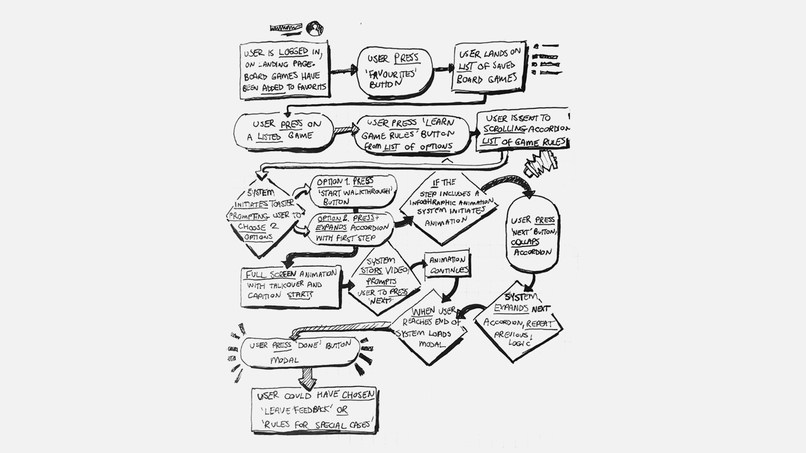 USER IS LOGGED IN,
ON LANDING PAGE.
BOARD GAMES HAVE
BEEN ADDED TO FAVORITS
USER PRESS
'FAVOURITES'
BUTTON
USER LANDS ON
LIST OF SAVED
BOARD GAMES
USER PRESS ON
A LISTED GAME
USER PRESS 'LEARN
GAME RULES' BUTTON
FROM LIST OF OPTIONS
USER IS SENT TO
SCROLLING ACCORDION
LIST OF GAME RULES
SYSTEM
INITIATES TOASER
PROMPTING USER TO
CHOOSE 2
OPTIONS
OPTION 1. PRESS
'START WALKTHROUGH'
BUTTON
OPTION 2. PRESS +
EXPANDS ACCORDION
WITH FIRST STEP
IF THE
STEP INCLUDES A
INFOGHRAPHIC ANIMATION
SYSTEM INITIATES
ANIMATION
USER PRESS
'NEXT' BUTTON,
COLLAPS
ACCORDION
FULL SCREEN ANIMATION
WITH TALKOVER AND
CAPTION STARTS
SYSTEM
STOPS VIDEO,
PROMPTS
USER TO PRESS
'NEXT'
ANIMATION
CONTINUES
WHEN USER
REACHES END OF
SYSTEM LOADS
MODAL
SYSTEM
EXPANDS NEXT
ACCORDION, REPEAT
PREVIOUS
LOGIC
USER PRESS 'DONE' BUTTON
MODAL
USER COULD HAVE CHOSEN
'LEAVE FEEDBACK' OR
'RULES FOR SPECIAL CASES'